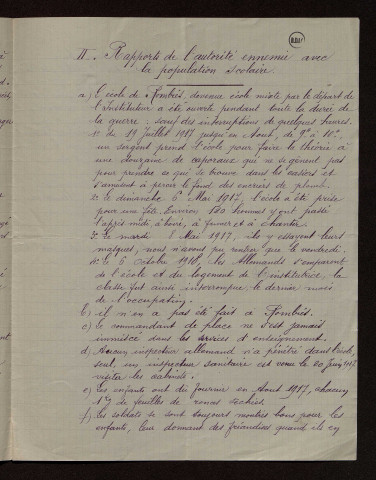 II. Rapports de l'autorité ennemie avec
la population scolaire.
a) L'école de Rombies, devenue école mixte par le départ de
l'Instituteur a été ouverte pendant toute la durée de
la guerre : sauf des interruptions de quelques heures.
1° du 19 Juillet 1917 jusqu'en Août, de 9h à 10h,
un sergent prend l'école pour faire la théorie à
une douzaine de caporaux qui ne se gênent pas
pour prendre ce qui se trouve dans les casiers et
s'amusent à percer le fond des encriers de plomb.
2° le dimanche 6 Mai 1917, l'école a été prise
pour une fête. Environ 120 hommes y ont passé
l'après midi à boire, à fumer et à chanter
3° le mardi Mai 1917, ils y essayent leurs
masques, nous n'avons pu rentrer que le vendredi.
4° le 6 octobre 1918, les Allemands s'emparent
de l'école et du logement de l'institutrice, la
classe fut ainsi interrompue le dernier mois
de l'occupation.
b) il n'en a pas été fait à Rombies.
c) le commandant de place ne s'est jamais
immiscé dans les services d'enseignement.
d) Aucun inspecteur allemand n'a pénétré dans l'école,
seul, un inspecteur sanitaire est venu le 20 Juin 1917
visiter les cabinets.
e) les enfants ont dû fournir en Août 1917, chacun
1 kg de feuilles de ronces séchées.
f) les soldats se sont toujours montrés bons pour les
enfants, leur donnant des friandises quand ils en